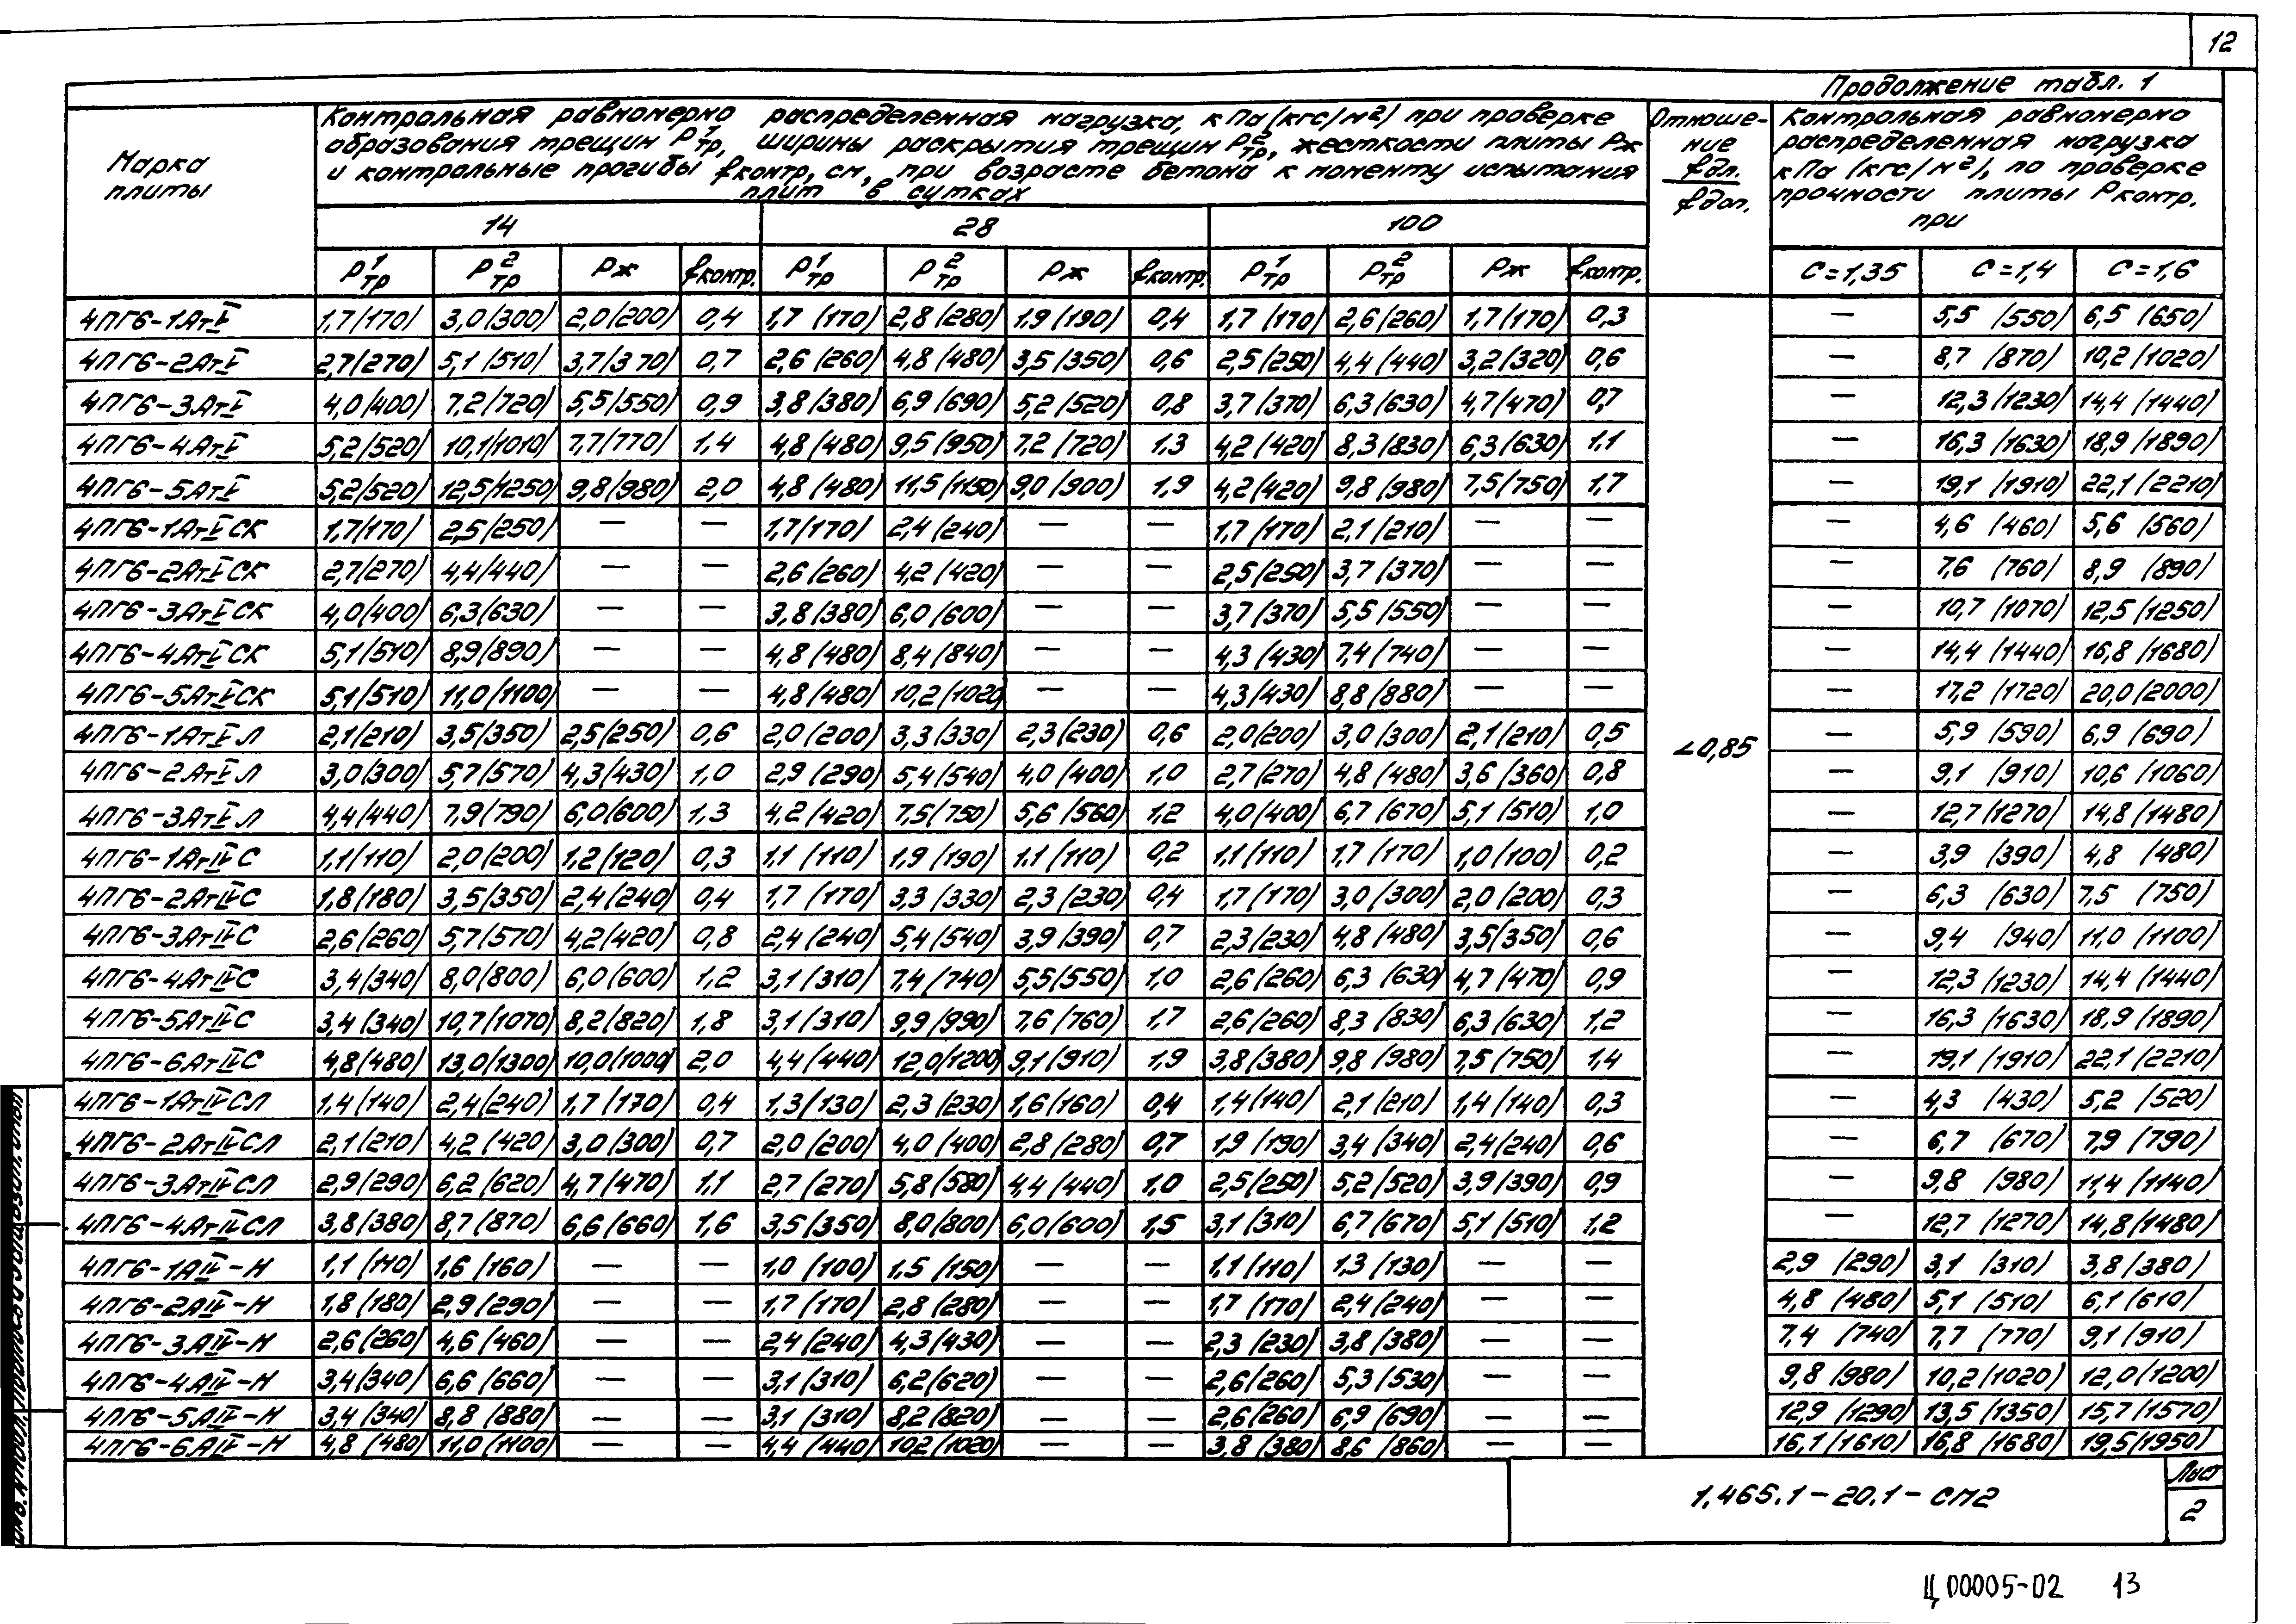 12
Продолжение табл. 1
Марка плиты
Контрольная равномерно распределенная нагрузка, кПа (кгс/м²) при проверке
образования трещин P¹тр, ширины раскрытия трещин P²тр, жесткости плиты Pж
и контрольные прогибы fконтр, см, при возрасте бетона к моменту испытания
плит в сутках
Отноше-
ние
fдл.
fдоп.
Контрольная равномерно
распределенная нагрузка
кПа (кгс/м²), по проверке
прочности плиты Pконтр.
при
14 28 100
P¹тр P²тр Pж fконтр. P¹тр P²тр Pж fконтр. P¹тр P²тр Pж fконтр. C=1,35 C=1,4 C=1,6
4ПГ6-1АтV 1,7(170) 3,0(300) 2,0(200) 0,4 1,7(170) 2,8(280) 1,9(190) 0,4 1,7(170) 2,6(260) 1,7(170) 0,3 — 5,5(550) 6,5(650)
4ПГ6-2АтV 2,7(270) 5,1(510) 3,7(370) 0,7 2,6(260) 4,8(480) 3,5(350) 0,6 2,5(250) 4,4(440) 3,2(320) 0,6 — 8,7(870) 10,2(1020)
4ПГ6-3АтV 4,0(400) 7,2(720) 5,5(550) 0,9 3,8(380) 6,9(690) 5,2(520) 0,8 3,7(370) 6,3(630) 4,7(470) 0,7 — 12,3(1230) 14,4(1440)
4ПГ6-4АтV 5,2(520) 10,1(1010) 7,7(770) 1,4 4,8(480) 9,5(950) 7,2(720) 1,3 4,2(420) 8,3(830) 6,3(630) 1,1 — 16,3(1630) 18,9(1890)
4ПГ6-5АтV 5,2(520) 12,5(1250) 9,8(980) 2,0 4,8(480) 11,5(1150) 9,0(900) 1,9 4,2(420) 9,8(980) 7,5(750) 1,7 — 19,1(1910) 22,1(2210)
4ПГ6-1АтVСК 1,7(170) 2,5(250) — — 1,7(170) 2,4(240) — — 1,7(170) 2,1(210) — — — 4,6(460) 5,6(560)
4ПГ6-2АтVСК 2,7(270) 4,4(440) — — 2,6(260) 4,2(420) — — 2,5(250) 3,7(370) — — — 7,6(760) 8,9(890)
4ПГ6-3АтVСК 4,0(400) 6,3(630) — — 3,8(380) 6,0(600) — — 3,7(370) 5,5(550) — — — 10,7(1070) 12,5(1250)
4ПГ6-4АтVСК 5,1(510) 8,9(890) — — 4,8(480) 8,4(840) — — 4,3(430) 7,4(740) — — — 14,4(1440) 16,8(1680)
4ПГ6-5АтVСК 5,1(510) 11,0(1100) — — 4,8(480) 10,2(1020 — — 4,3(430) 8,8(880) — — — 17,2(1720) 20,0(2000)
4ПГ6-1АтVЛ 2,1(210) 3,5(350) 2,5(250) 0,6 2,0(200) 3,3(330) 2,3(230) 0,6 2,0(200) 3,0(300) 2,1(210) 0,5 <0,85 — 5,9(590) 6,9(690)
4ПГ6-2АтVЛ 3,0(300) 5,7(570) 4,3(430) 1,0 2,9(290) 5,4(540) 4,0(400) 1,0 2,7(270) 4,8(480) 3,6(360) 0,8 — 9,1(910) 10,6(1060)
4ПГ6-3АтVЛ 4,4(440) 7,9(790) 6,0(600) 1,3 4,2(420) 7,5(750) 5,6(560) 1,2 4,0(400) 6,7(670) 5,1(510) 1,0 — 12,7(1270) 14,8(1480)
4ПГ6-1АтIVС 1,1(110) 2,0(200) 1,2(120) 0,3 1,1(110) 1,9(190) 1,1(110) 0,2 1,1(110) 1,7(170) 1,0(100) 0,2 — 3,9(390) 4,8(480)
4ПГ6-2АтIVС 1,8(180) 3,5(350) 2,4(240) 0,4 1,7(170) 3,3(330) 2,3(230) 0,4 1,7(170) 3,0(300) 2,0(200) 0,3 — 6,3(630) 7,5(750)
4ПГ6-3АтIVС 2,6(260) 5,7(570) 4,2(420) 0,8 2,4(240) 5,4(540) 3,9(390) 0,7 2,3(230) 4,8(480) 3,5(350) 0,6 — 9,4(940) 11,0(1100)
4ПГ6-4АтIVС 3,4(340) 8,0(800) 6,0(600) 1,2 3,1(310) 7,4(740) 5,5(550) 1,0 2,6(260) 6,3(630) 4,7(470) 0,9 — 12,3(1230) 14,4(1440)
4ПГ6-5АтIVС 3,4(340) 10,7(1070) 8,2(820) 1,8 3,1(310) 9,9(990) 7,6(760) 1,7 2,6(260) 8,3(830) 6,3(630) 1,2 — 16,3(1630) 18,9(1890)
4ПГ6-6АтIVС 4,8(480) 13,0(1300) 10,0(1000) 2,0 4,4(440) 12,0(1200) 9,1(910) 1,9 3,8(380) 9,8(980) 7,5(750) 1,4 — 19,1(1910) 22,1(2210)
4ПГ6-1АтIVСЛ 1,4(140) 2,4(240) 1,7(170) 0,4 1,3(130) 2,3(230) 1,6(160) 0,4 1,4(140) 2,1(210) 1,4(140) 0,3 — 4,3(430) 5,2(520)
4ПГ6-2АтIVСЛ 2,1(210) 4,2(420) 3,0(300) 0,7 2,0(200) 4,0(400) 2,8(280) 0,7 1,9(190) 3,4(340) 2,4(240) 0,6 — 6,7(670) 7,9(790)
4ПГ6-3АтIVСЛ 2,9(290) 6,2(620) 4,7(470) 1,1 2,7(270) 5,8(580) 4,4(440) 1,0 2,5(250) 5,2(520) 3,9(390) 0,9 — 9,8(980) 11,4(1140)
4ПГ6-4АтIVСЛ 3,8(380) 8,7(870) 6,6(660) 1,6 3,5(350) 8,0(800) 6,0(600) 1,5 3,1(310) 6,7(670) 5,1(510) 1,2 — 12,7(1270) 14,8(1480)
4ПГ6-1АIV-Н 1,1(110) 1,6(160) — — 1,0(100) 1,5(150) — — 1,1(110) 1,3(130) — — 2,9(290) 3,1(310) 3,8(380)
4ПГ6-2АIV-Н 1,8(180) 2,9(290) — — 1,7(170) 2,8(280) — — 1,7(170) 2,4(240) — — 4,8(480) 5,1(510) 6,1(610)
4ПГ6-3АIV-Н 2,6(260) 4,6(460) — — 2,4(240) 4,3(430) — — 2,3(230) 3,8(380) — — 7,4(740) 7,7(770) 9,1(910)
4ПГ6-4АIV-Н 3,4(340) 6,6(660) — — 3,1(310) 6,2(620) — — 2,6(260) 5,3(530) — — 9,8(980) 10,2(1020) 12,0(1200)
4ПГ6-5АIV-Н 3,4(340) 8,8(880) — — 3,1(310) 8,2(820) — — 2,6(260) 6,9(690) — — 12,9(1290) 13,5(1350) 15,7(1570)
4ПГ6-6АIV-Н 4,8(480) 11,0(1100) — — 4,4(440) 10,2(1020) — — 3,8(380) 8,6(860) — — 16,1(1610) 16,8(1680) 19,5(1950)
1.465.1-20.1-СМ2
Лист
2
Ц00005-02 13